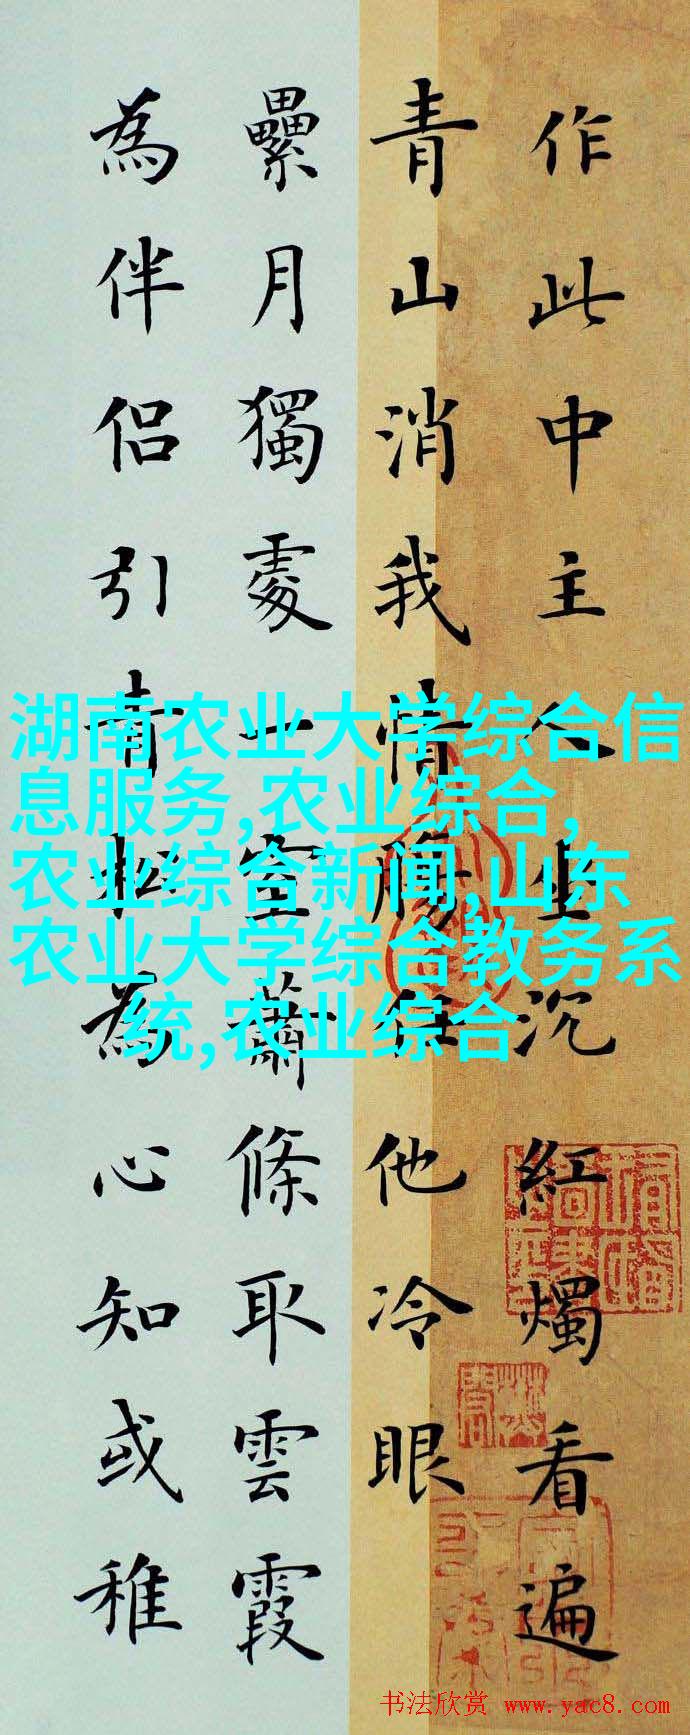 作此中主人坐沉紅燭看遍
青山消我情腸任他冷眼
纍月獨處一室蕭條取雲霞
為伴侣引青松為心知或稚
湖南农业大学综合信
息服务,农业综合,
农业综合新闻,山东
农业大学综合教务系
统,农业综合
书法欣赏 www.yac8.com